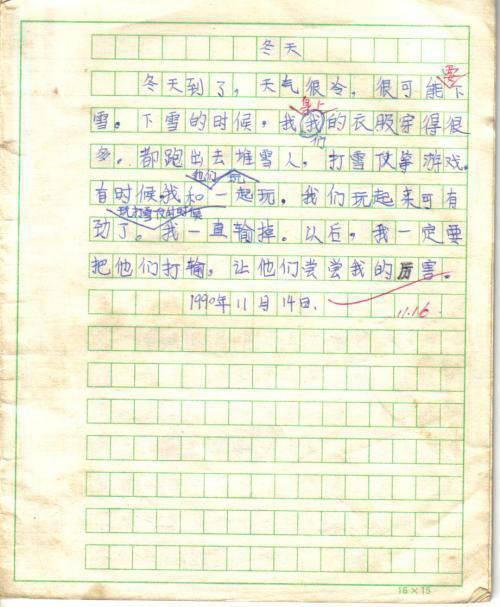 冬天
冬天到了，天气很冷，很可能要下
雪。下雪的时候，我身上我们的衣服穿得很
多。都跑出去堆雪人，打雪仗等游戏。
有时候我和他们一起玩。我们玩起来可有
劲了。玩打雪仗的时候我一直输掉。以后，我一定要
把他们打输，让他们尝尝我的厉害。
1990年11月14日.
11.16
16×15